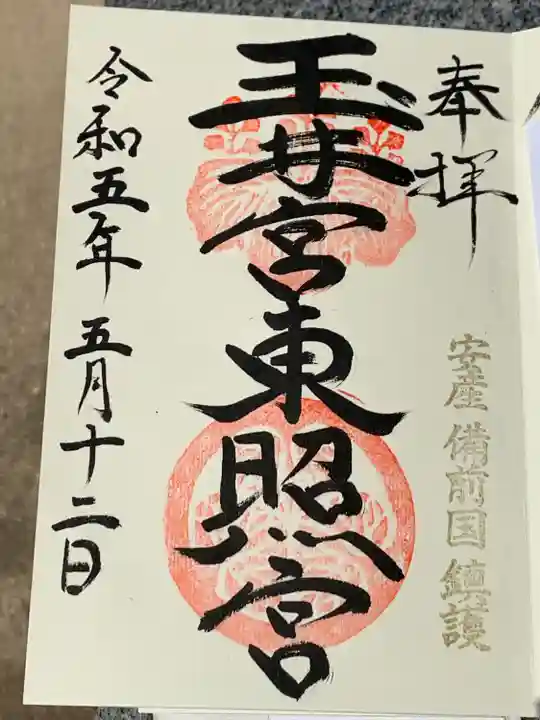 奉拝
安産 備前国 鎮護
玉井宮東照宮
令和五年 五月十二日